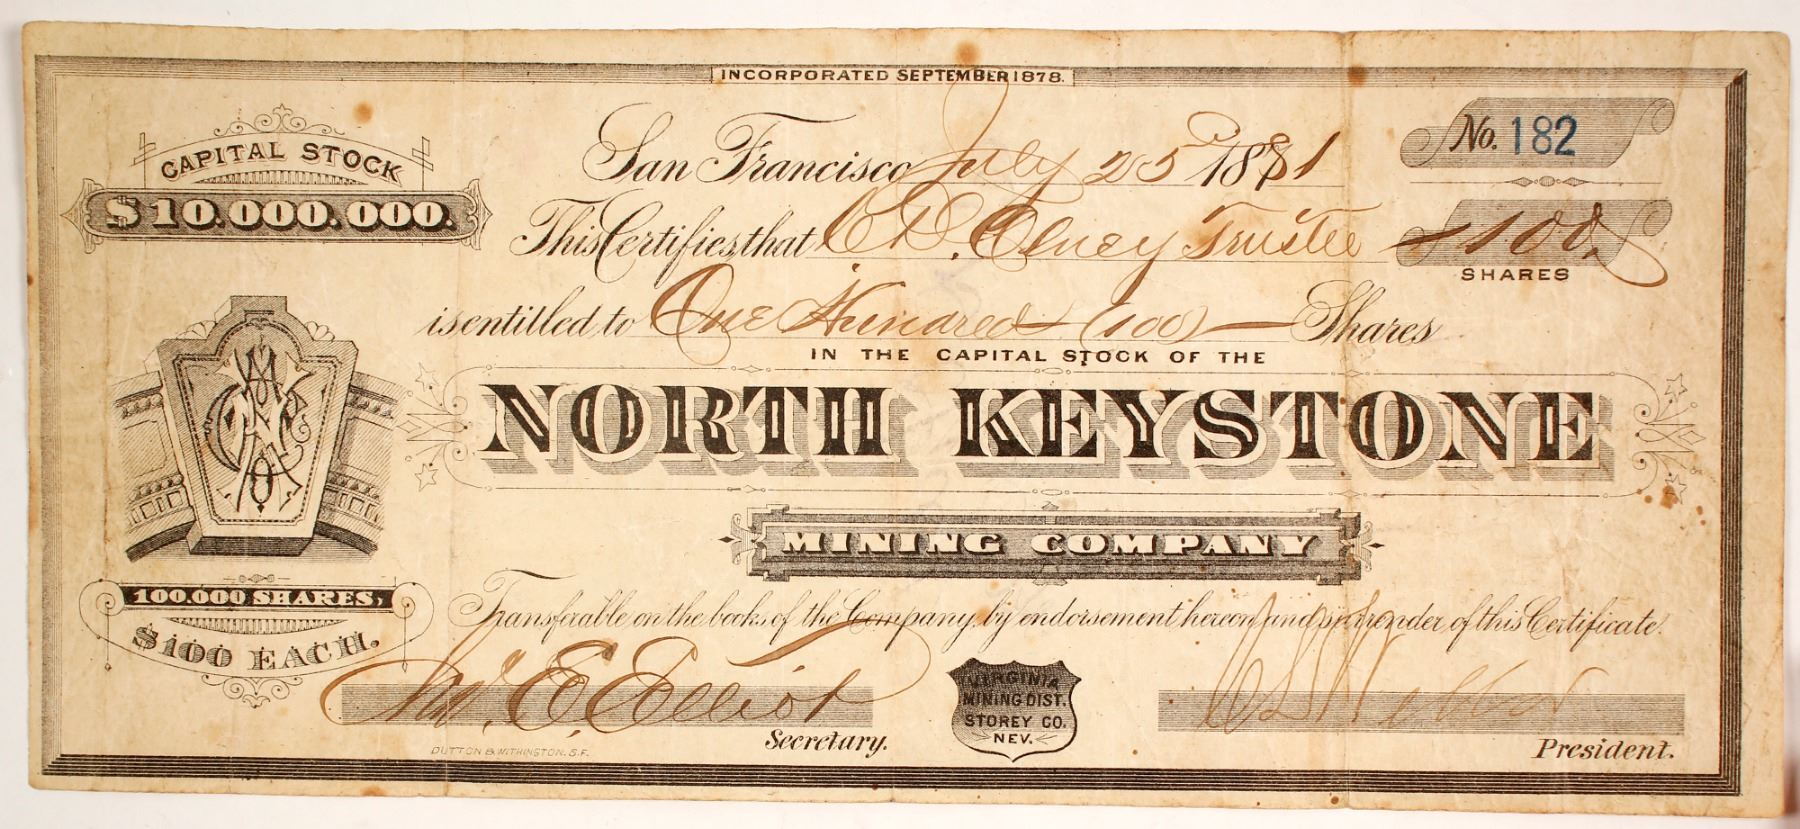 INCORPORATED SEPTEMBER 1878.
CAPITAL STOCK
$10.000.000.
San Francisco July 25 1881
No. 182
This Certifies that C D. Olney Trustee
100
SHARES
is entitled to One Hundred (100) Shares
IN THE CAPITAL STOCK OF THE
NORTH KEYSTONE
MINING COMPANY
100.000 SHARES,
$100 EACH.
Transferable on the books of the Company, by endorsement hereon and surrender of this Certificate.
E. Elliot
Secretary.
VIRGINIA
MINING DIST.
STOREY CO.
NEV.
President.
DUTTON & WITHINGTON. S.F.